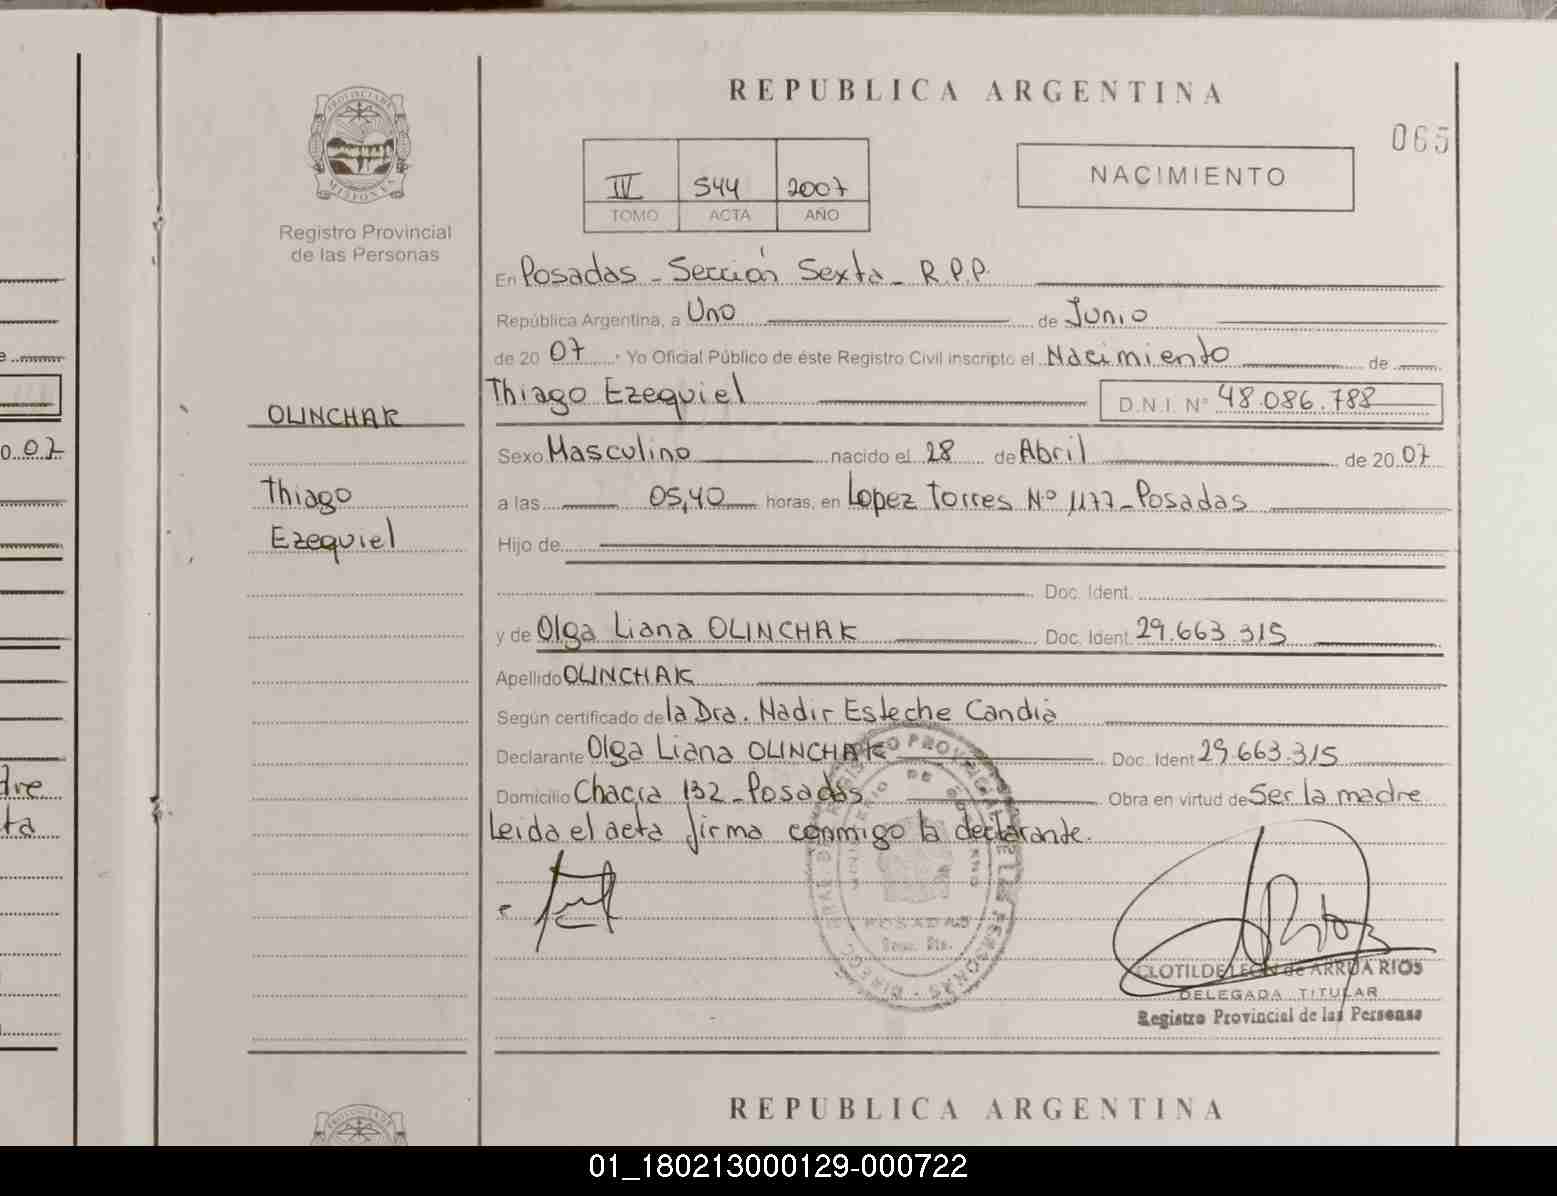 REPUBLICA ARGENTINA
065
PROVINCIA DE
MISIONES
Registro Provincial
de las Personas
IV 544 2007
TOMO ACTA AÑO
NACIMIENTO
En Posadas - Sección Sexta - R.P.P.
República Argentina, a Uno de Junio
de 20 07 Yo Oficial Público de éste Registro Civil inscripto el Nacimiento de
Thiago Ezequiel D.N.I. N° 48.086.788
OLINCHAK
Thiago
Ezequiel
Sexo Masculino nacido el 28 de Abril de 20 07
a las 05,40 horas, en Lopez Torres N° 1177 - Posadas
Hijo de
Doc. Ident.
y de Olga Liana OLINCHAK Doc. Ident. 29.663.315
Apellido OLINCHAK
Según certificado de la Dra. Nadir Esteche Candia
Declarante Olga Liana OLINCHAK Doc. Ident 29.663.315
Domicilio Chacra 132 - Posadas Obra en virtud de Ser la madre
Leida el acta firma conmigo la declarante.
POSADAS
CLOTILDE LEON de ARRUA RIOS
DELEGADA TITULAR
Registro Provincial de las Personas
REPUBLICA ARGENTINA
01_180213000129-000722